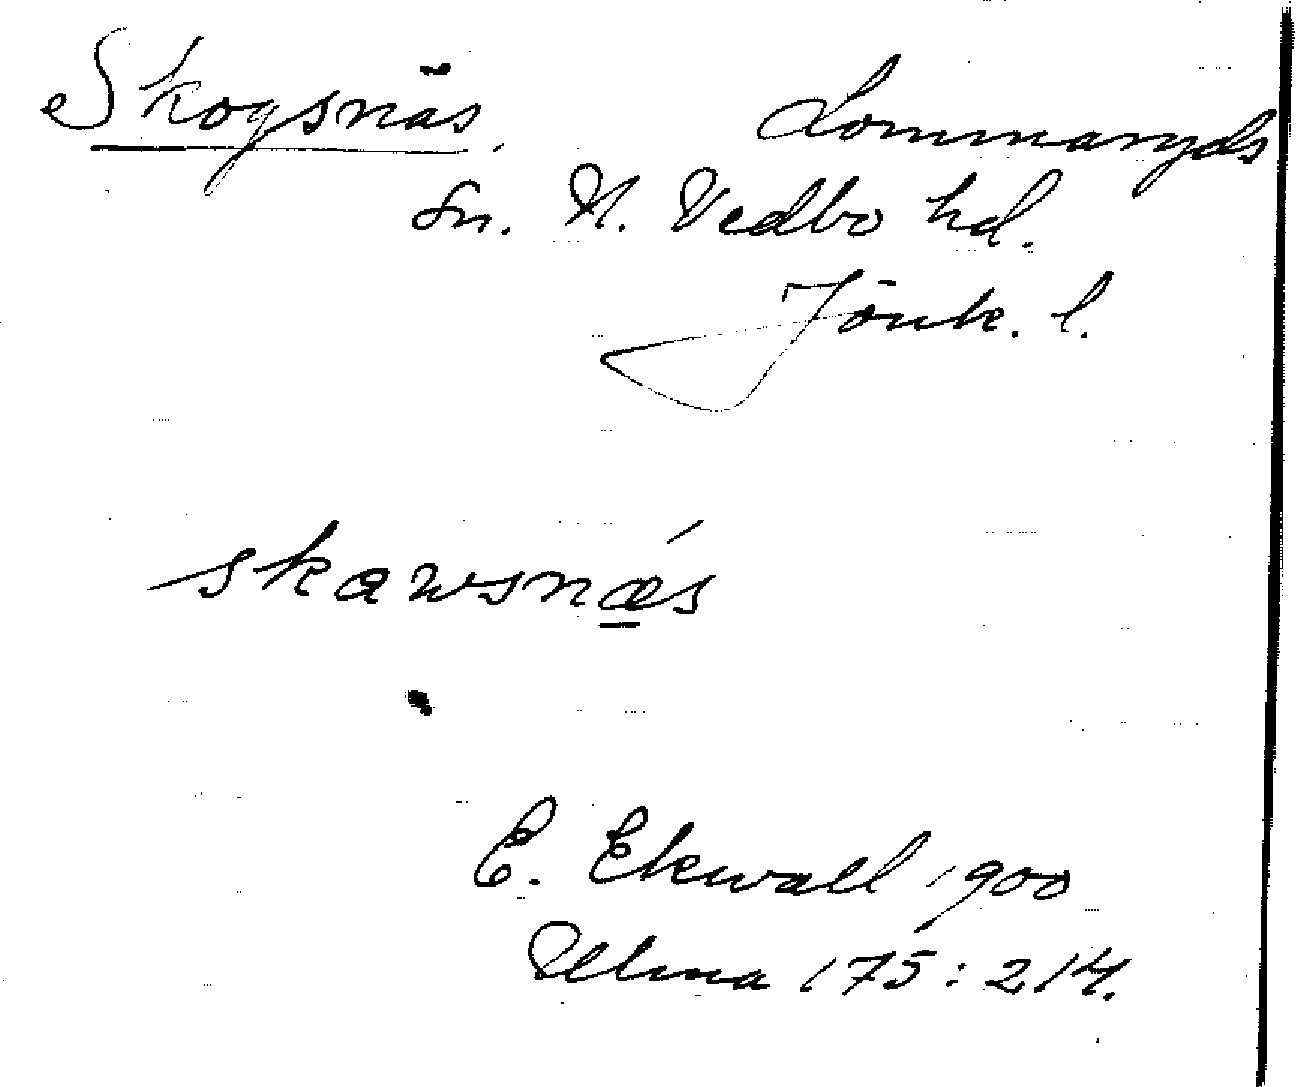 Skogsnäs. Lommaryds
sn. N. Vedbo hd.
Jönk. l.
skawsnǽs
E. Ekwall 1900
Ulma 175:214.